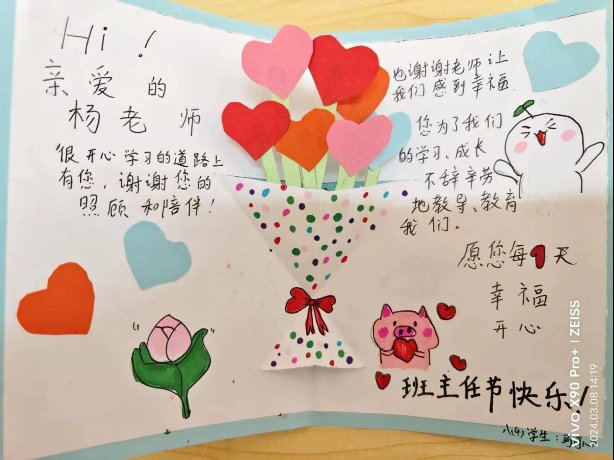 Hi!
亲爱的
杨老师
很开心学习的道路上
有您,谢谢您的
照顾和陪伴!
也谢谢老师让
我们感到幸福
您为了我们
的学习、成长
不辞辛劳
地教导、教育
我们。
愿您每1天
幸福
开心
班主任节快乐!
八(4)学生:
vivo X90 Pro+ | ZEISS
2024.03.08 14:19